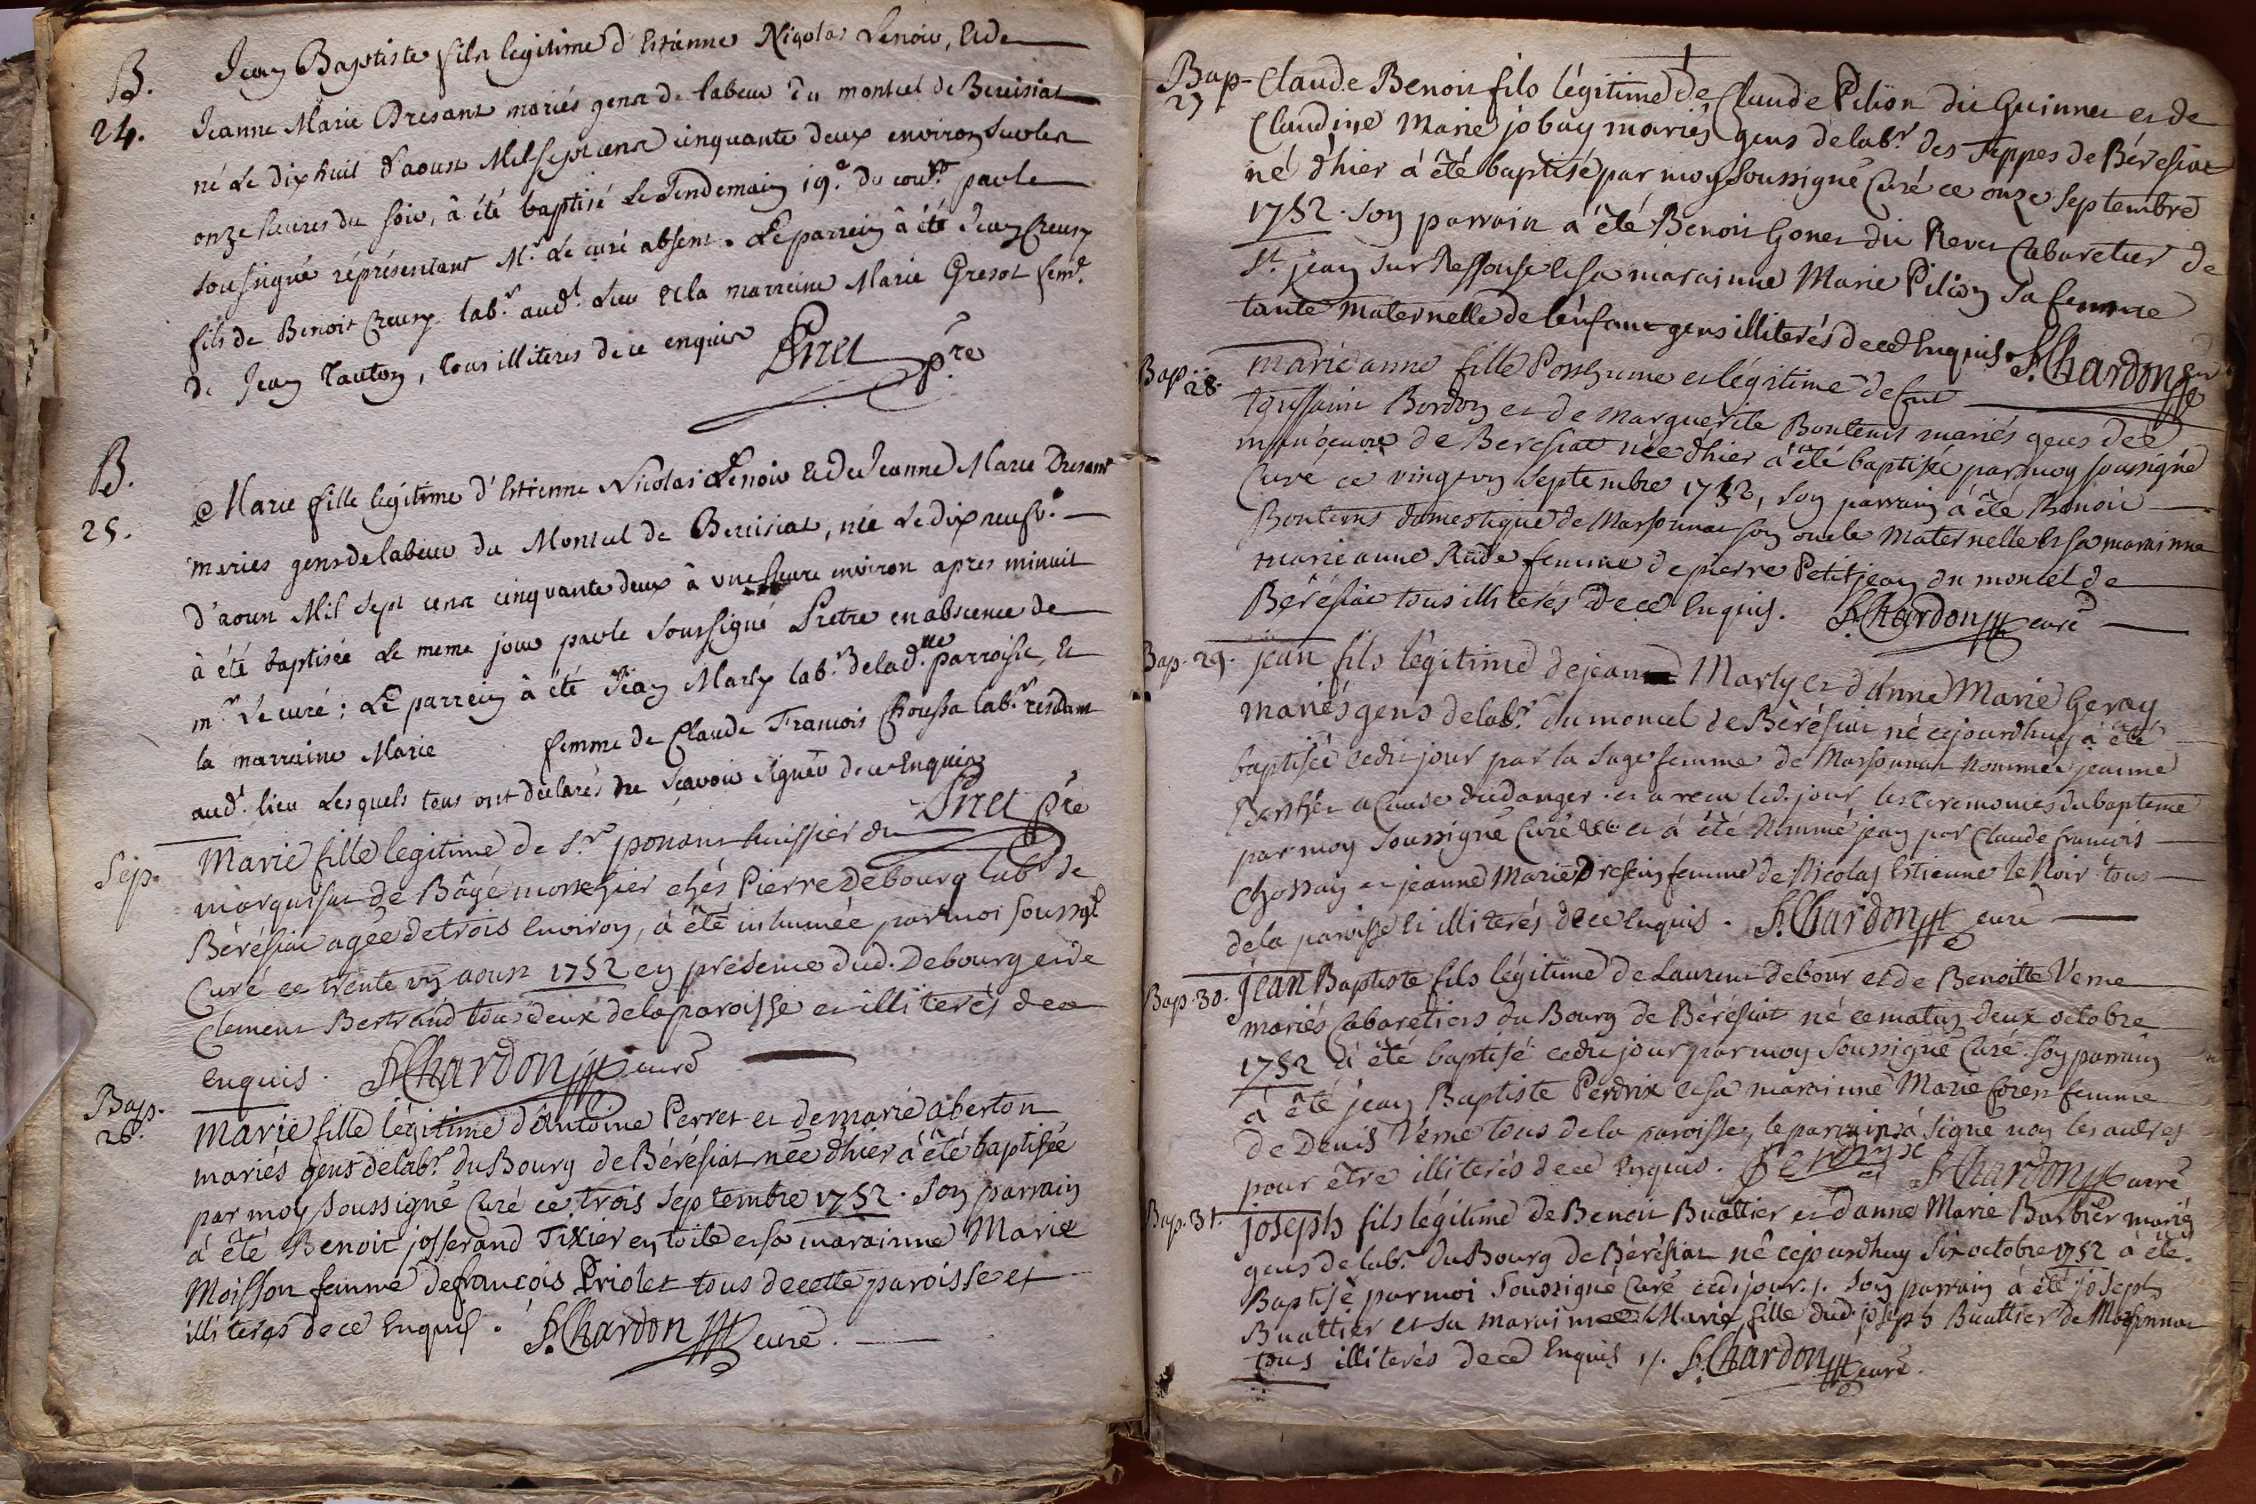 B.
24.
Jean Baptiste fils legitime d'Estienne Nicolas Lenoir, & de
Jeanne Marie Dresant mariés gens de labeur du montcel de Bereisiat
né Le dix huit d'aoust Mil sept cens cinquante deux environ sur les
onze heures du soir, à été baptisé Le Lendemain 19.e du cou.rt par le
soussigné réprésentant M.r Le curé absent. Le parrein à été Jean Creusy
fils de Benoit Creusy lab.r aud.t Lieu & la marreine Marie Gresot fem.e
de Jean Tauton, tous illiteres de ce enquis Pret p.re
B.
25.
Marie fille legitime d'Estienne Nicolas Lenoir & de Jeanne Marie Dresant
mariés gens de labeur du Montcel de Bereisiat, née Le dix neufv.e
d'aoust Mil sept cens cinquante deux à une heure environ apres minuit
à été baptisée Le meme jour par le soussigné Prêtre en abscence de
m.r Le curé ; Le parrein à été Jean Marly lab.r de lad.me parroisse, &
la marreine Marie femme de Claude Francois Choussa lab.r residant
aud.t lieu Lesquels tous ont declarés ne scavoir signer de ce Enquis
Pret p.re
Sep.
Marie fille legitime de S.r ponant huissier du
marquisat de Bâgé mort hier chés Pierre Debourg lab.r de
Bérésiat agée de trois environ, à été inhumée par moi soussig.é
Curé ce trente un aoust 1752 en présence dud. Debourg et de
Clement Bertrand tous deux de la paroisse et illiterés de ce
enquis. F. Chardon curé
Bap.
26.
Marie fille légitime d'Antoine Perret et de marie aberton
mariés gens de lab.r du Bourg de Bérésiat née d'hier à été baptisée
par moy soussigné Curé ce trois septembre 1752. Son parrain
à été Benoit josserand Tixier en toile et sa marainne Marie
Moisson femme de francois Priolet tous de cette paroisse et
illiterés de ce Enquis. F. Chardon curé.
Bap.
27
Claude Benoit fils légitime de Claude Pilion dit Guinnet et de
Claudine Marie jobay mariés gens de lab.r des Teppes de Bérésiat
né d'hier à été baptisé par moy soussigné Curé ce onze septembre
1752. Son parrain à été Benoit Gonet dit Revet Cabaretier de
S.t jean sur Ressouse et sa marainne Marie Pilion sa femme
tante Maternelle de l'enfant gens illiterés de ce Enquis. F. Chardon
curé
Bap.
28.
marie anne fille Posthume et légitime de fut
Toussaint Bordon et de Marguerite Boutems mariés gens de
mainoeuvre de Beresiat née d'hier à été baptisée par moy soussigné
Curé ce vingt un septembre 1752, son parrain à été Benoit
Boutems domestique de Marsonnat son oncle Maternelle et sa marainne
marie anne Rude femme de pierre Petitjean du moncel de
Bérésiat tous illiterés de ce Enquis. F. Chardon curé
Bap. 29.
jean fils légitime de jean Marly et d'anne Marie Geray
mariés gens de lab.r du moncel de Bérésiat né cejourdhuy à été
baptisé cedit jour par la sage femme de Marsonnat nommée jeanne
Berthet a Cause du danger et a reçu led. jour les Ceremonies du bapteme
par moy soussigné Curé et à été Nommé jean par Claude francois
Chossay et jeanne Marie Dresein femme de Nicolas Estienne le Noir tous
de la paroisse et illiterés de ce Enquis. F. Chardon curé
Bap. 30.
jean Baptiste fils légitime de Laurent debour et de Benoitte Verne
mariés Cabaretiers du Bourg de Bérésiat né ce matin deux octobre
1752 à été baptisé cedit jour par moy soussigné Curé. Son parrain
à été jean Baptiste Perdrix et sa marainne Marie Coren femme
de Denis Verne tous de la paroisse, le parrain à signé non les autres
pour être illiterés de ce Enquis. Perdrix F. Chardon curé
Bap. 31.
joseph fils légitime de Benoit Buattier et d'anne Marie Barbier mariés
gens de lab.r du Bourg de Bérésiat né cejourdhuy six octobre 1752 à été
Baptisé par moi soussigné Curé cedit jour. Son parrain à été joseph
Buattier et sa marainne Marie fille dud. joseph Buattier de Marsonnat
tous illiterés de ce Enquis. F. Chardon curé.